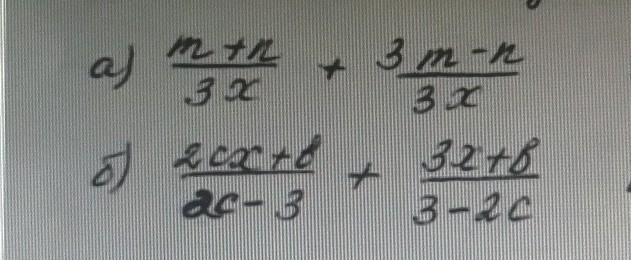 а) (m+n)/(3x) + (3m-n)/(3x)
б) (2cx+b)/(2c-3) + (3x+b)/(3-2c)